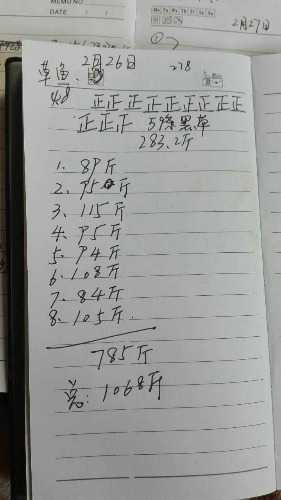 MEMO NO
DATE
2月27日
①
2月26日
278
草鱼、
48 正正正正正正正正正
正正正 59条黑草
283.2斤
1、89斤
2、95斤
3、115斤
4、95斤
5、94斤
6、108斤
7、84斤
8、105斤
785斤
总:1068斤